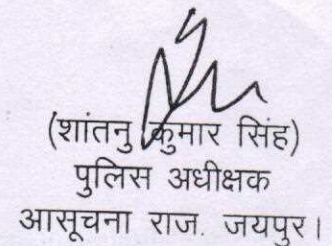 (शांतनु कुमार सिंह)
पुलिस अधीक्षक
आसूचना राज. जयपुर।